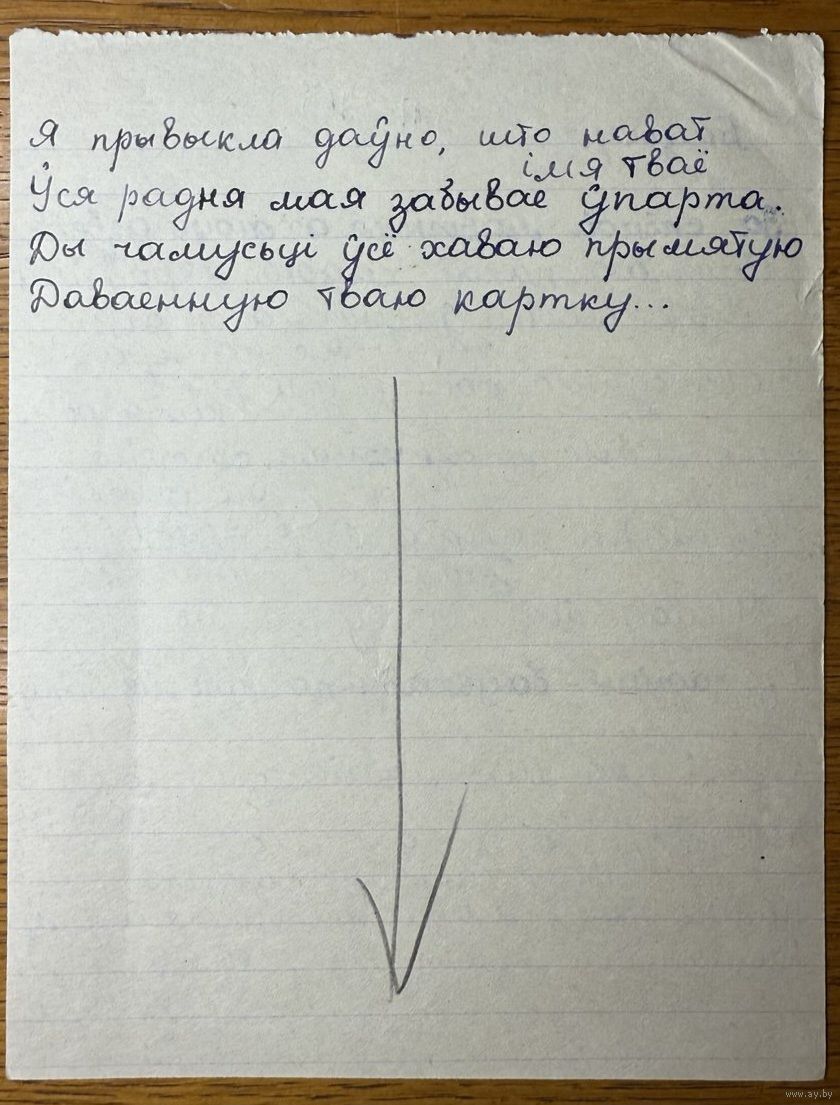 Я прывыкла даўно, што нават
імя тваё
Ўся радня мая забывае ўпарта.
Ды чамусьці ўсё хаваю прымятую
Даваенную тваю картку...
www.ay.by